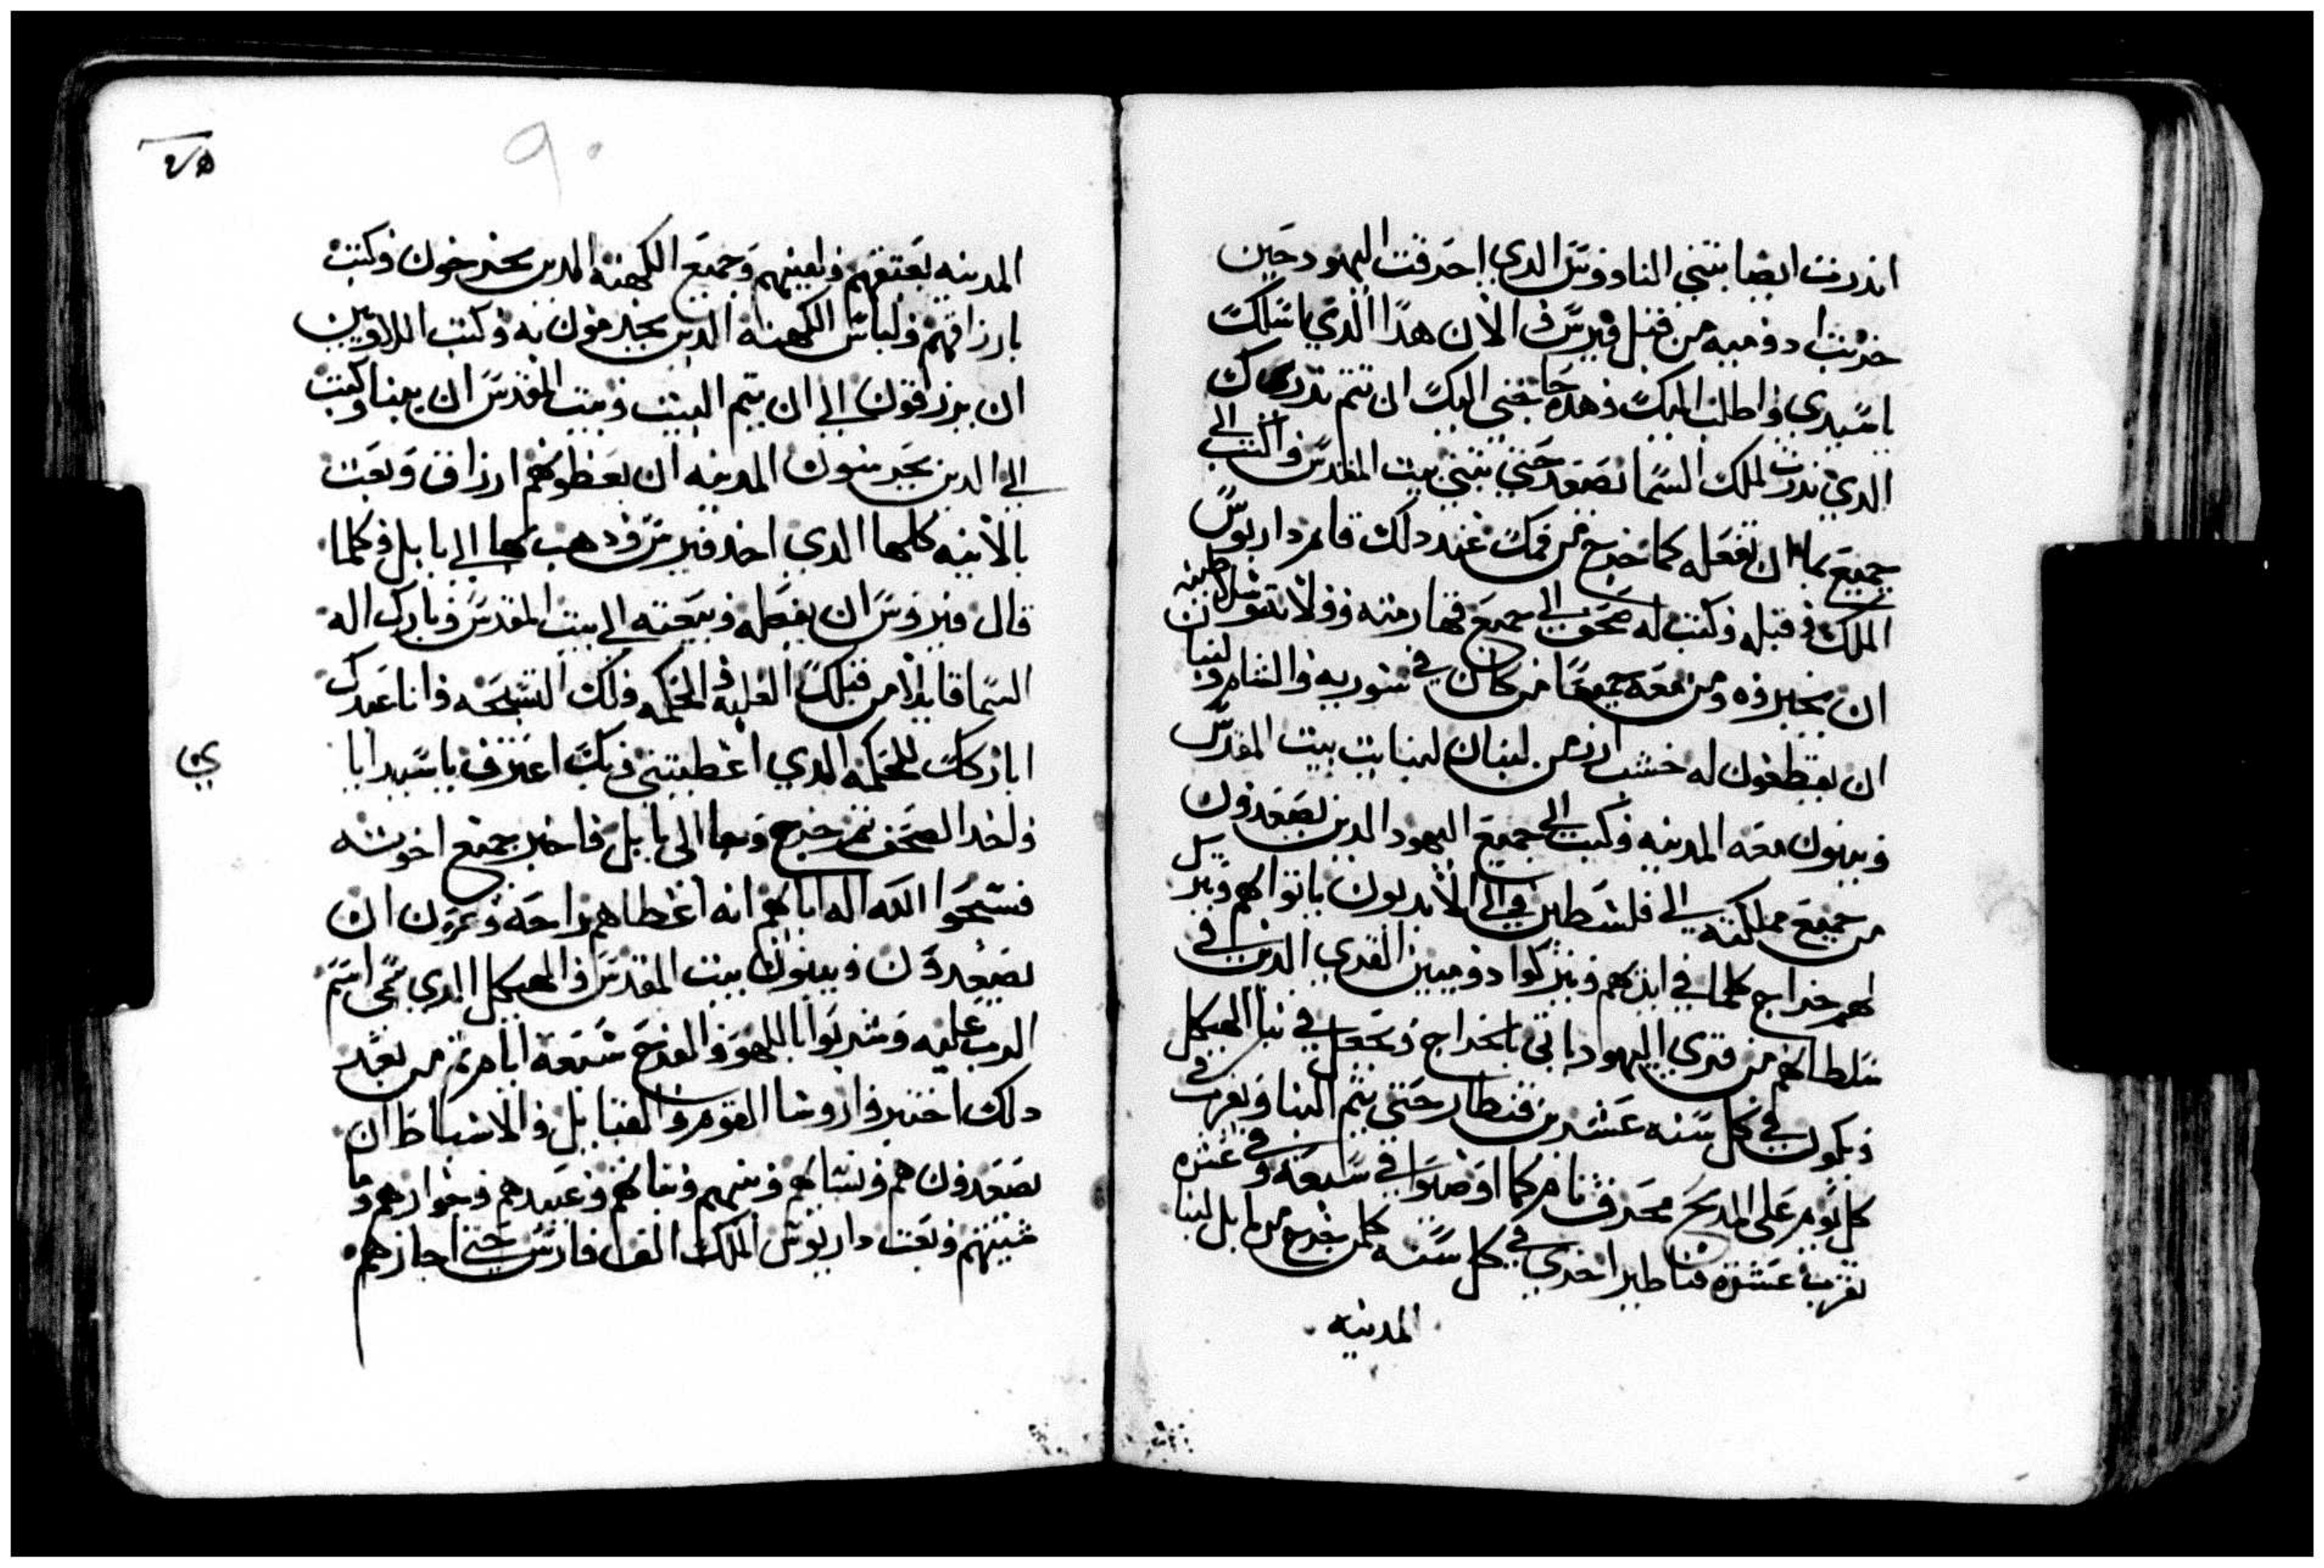 اندرت ايضا بتبني الناووس الدي احرقت اليهود حين
خربت ادوميه من قبل فيرس و الان هدا الدي ياسلك
ياسيدي واطلب اليك وهده حاجتي اليك ان تتم ندرك
الدي ندرت لملك السما نصعد حتي تبني بيت المقدس واكتب الي
جميع ان تفعله كما خرج من فمك عند دلك قام داريوس
الملك وقبله وكتب له صحف الي جميع قهارمته وولاته وسلاطينه
ان يجيزوه ومن معه جميعا من كان في سوريه والشام ولبنان
ان يقطعون له خشب ارز من لبنان لبنا بيت المقدس
ويبنون معه المدينه وكتب الي جميع اليهود الدين يصعدون
من جميع مملكته الي فلسطين الي لهم ويترك
لهم خراج كلما في ايديهم ويتركوا دوميين القري الدين في
سلطانهم من قري اليهود ياتي بالخراج ويجعل في بنا الهيكل
ويكون في كل سنه عشرين قنطار حتي يتم البنا ويقرب في
كل يوم علي المدبح محرق تام كما اوصوا في سبعه وفي عشره
يقرب عشره قناطير اخري في كل سنه كلمن يخرج من بابل لبنا
المدينه
٩٠
المدينه بعتقهم وبنيهم وجميع الكهنه الدين يخرجون وكتب
بارزاقهم ولباس الكهنه الدين يخدمون به وكتب اللاويين
ان يرزقون الي ان يتم البيت وبيت المقدس ان يبنا وكتب
الي الدين يحرسون المدينه ان يعطوهم ارزاق وبعت
بالانيه كلها الدي اخد فيرس ودهب بها الي بابل وكلما
قال فيروس ان يفعله وبعته الي بيت المقدس وبارك اله
السما قايلا من قبلك الغلبه و الحكمه ولك التسبحه وانا عبدك
اباركك للحكمه الدي اعطيتني وبك اعترف يا سيد ابايي
واخد الصحف تم خرج وجا الي بابل فاخبر جميع اخوته
فسبحوا الله اله ابايهم انه اعطاهم راحه ان
يصعدون ويبنون بيت المقدس والهيكل الدي سمي اسم
الرب عليه وشربوا باللهو والفرح سبعه ايام تم من بعد
دلك اختيروا روسا القوم والقبايل والاسباط ان
يصعدون هم ونسايهم وبنيهم وبناتهم وعبيدهم وجوارهم وما
شيتهم وبعت داريوس الملك الف فارس حتي اجازهم